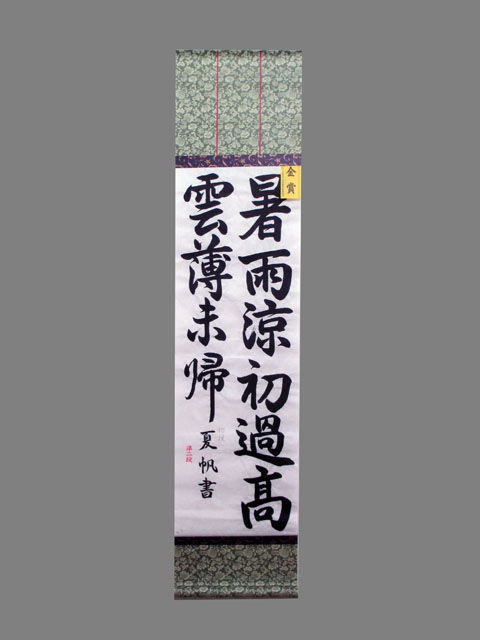 金賞
暑雨涼初過高
雲薄未帰
夏帆書